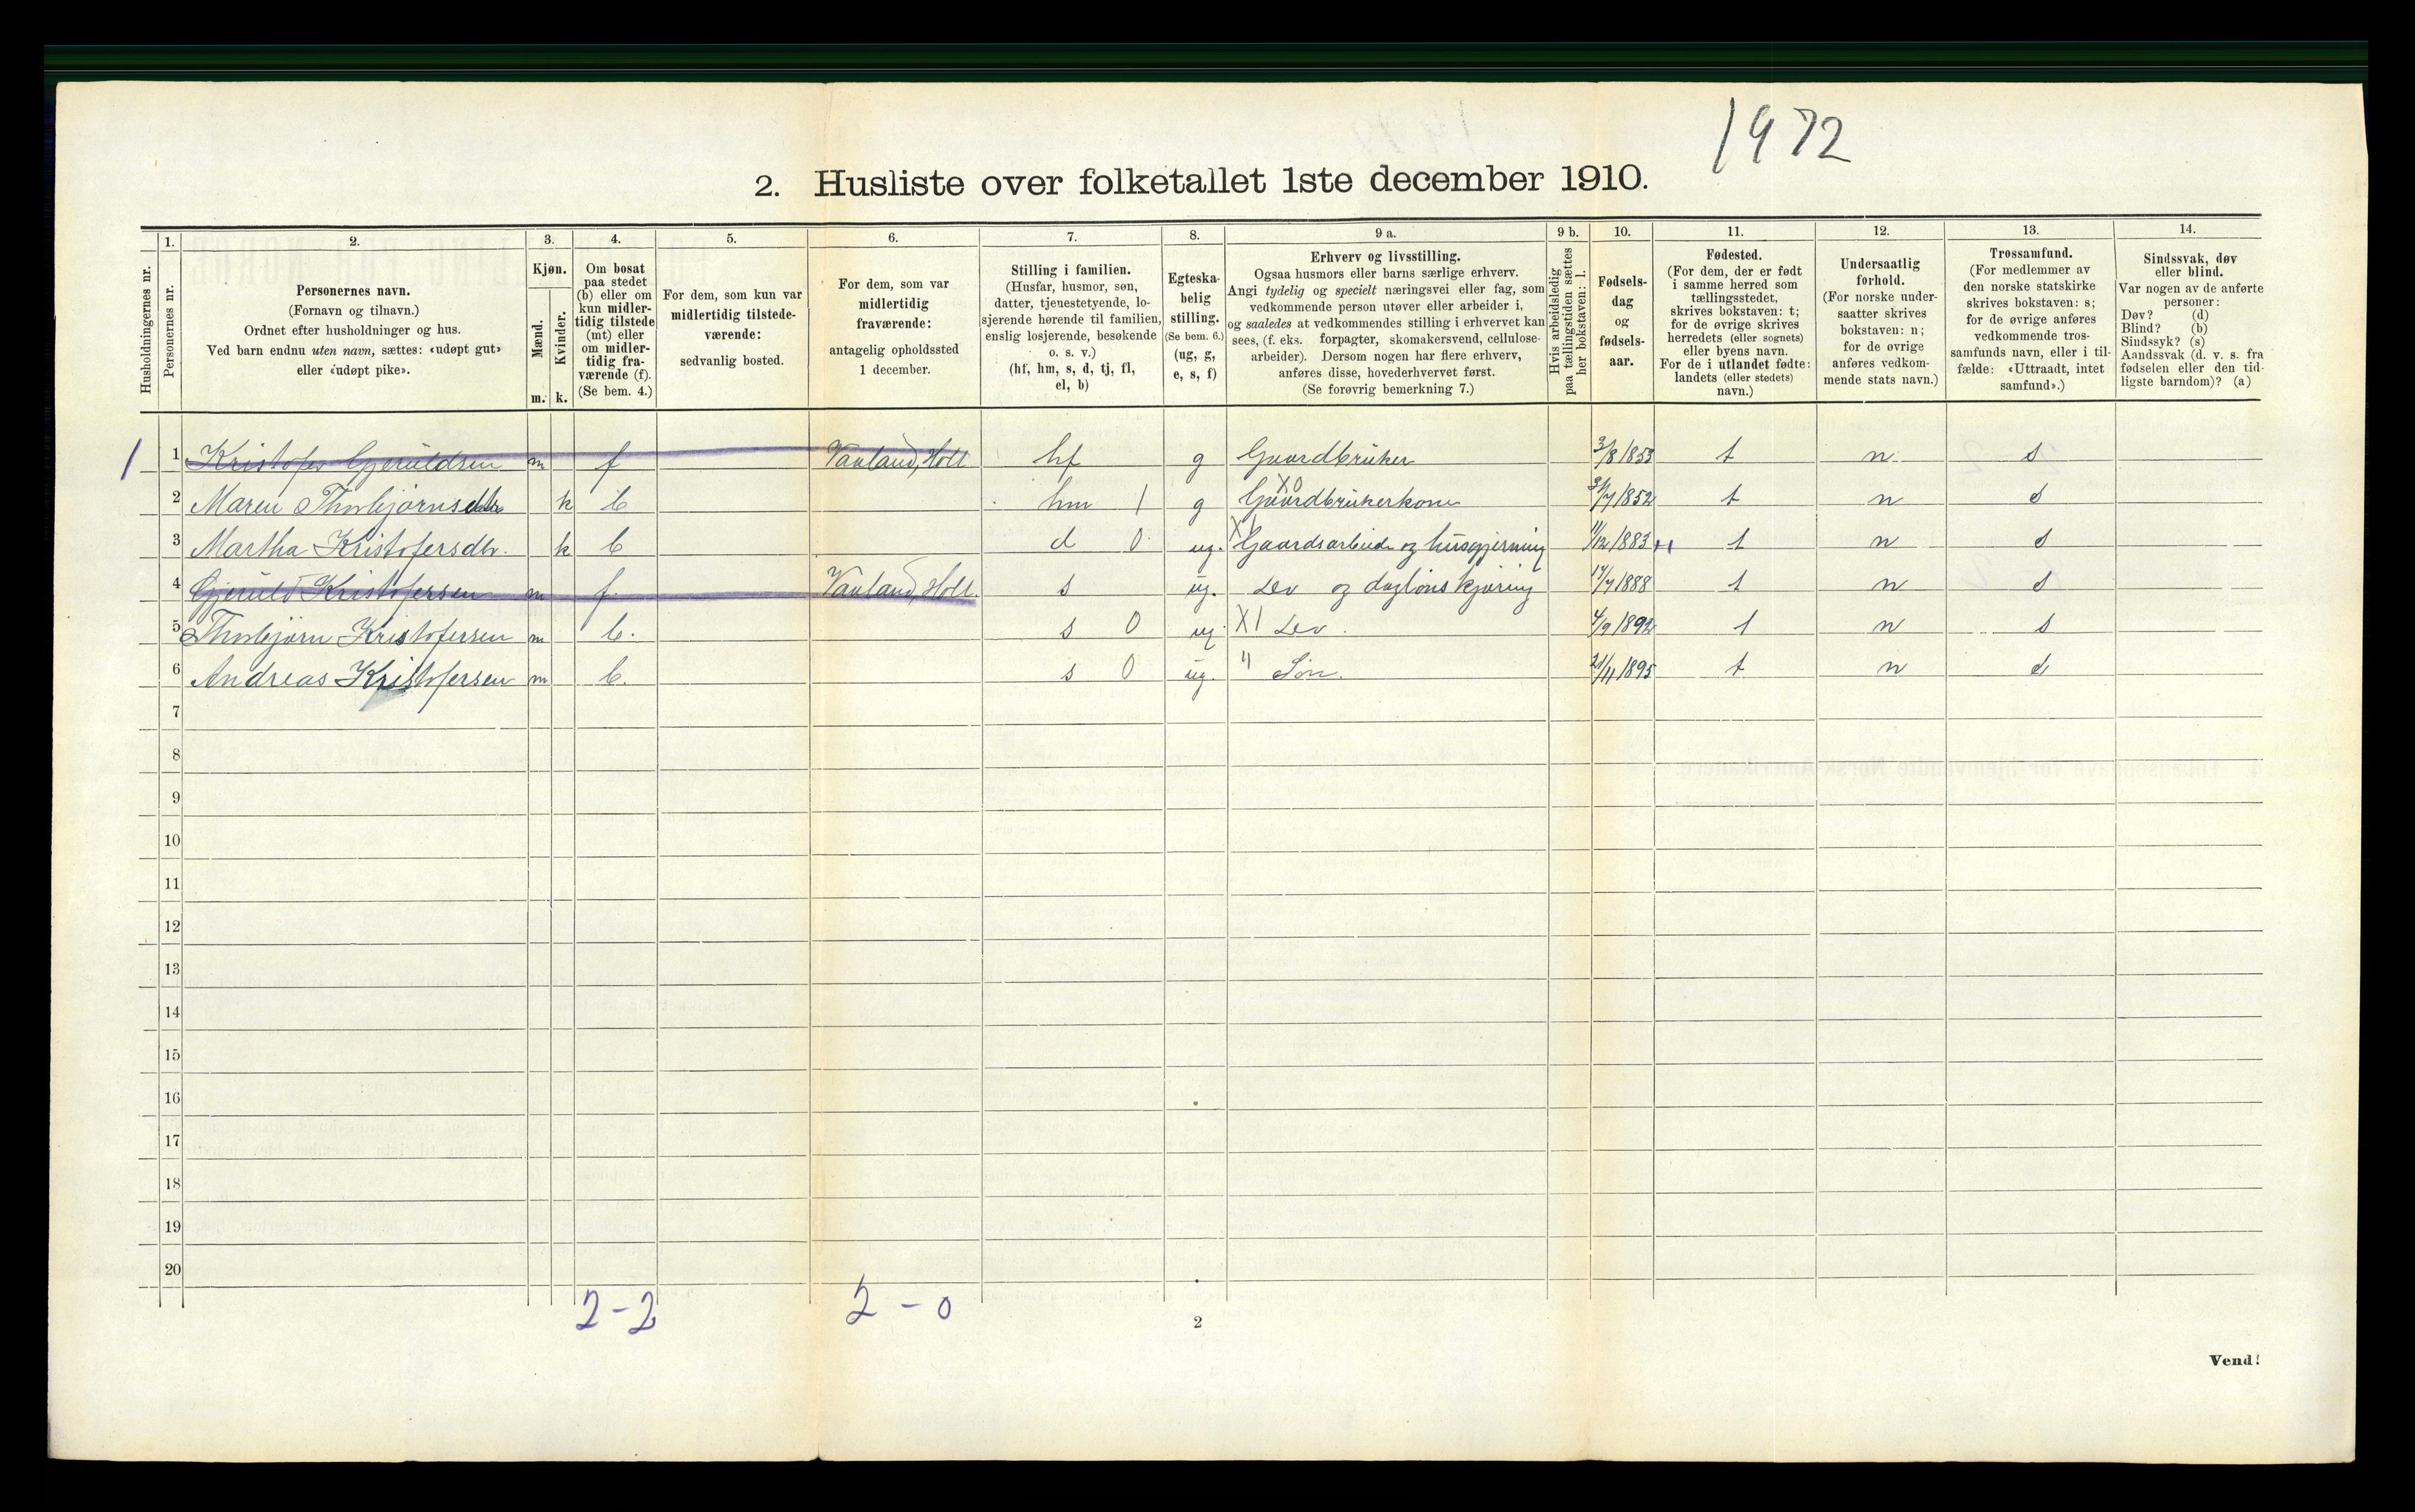 1972
2. Husliste over folketallet 1ste december 1910.
1. 2. 3. 4. 5. 6. 7. 8. 9 a. 9 b. 10. 11. 12. 13. 14.
Husholdningernes nr.
Personernes nr.
Personernes navn.
(Fornavn og tilnavn.)
Ordnet efter husholdninger og hus.
Ved barn endnu uten navn, sættes: «udøpt gut»
eller «udøpt pike».
Kjøn.
Mænd.
Kvinder.
m. k.
Om bosat
paa stedet
(b) eller om
kun midler-
tidig tilstede
(mt) eller
om midler-
tidig fra-
værende (f).
(Se bem. 4.)
For dem, som kun var
midlertidig tilstede-
værende:
sedvanlig bosted.
For dem, som var
midlertidig
fraværende:
antagelig opholdssted
1 december.
Stilling i familien.
(Husfar, husmor, søn,
datter, tjenestetyende, lo-
sjerende hørende til familien,
enslig losjerende, besøkende
o. s. v.)
(hf, hm, s, d, tj, fl,
el, b)
Egteska-
belig
stilling.
(Se bem. 6.)
(ug, g,
e, s, f)
Erhverv og livsstilling.
Ogsaa husmors eller barns særlige erhverv.
Angi tydelig og specielt næringsvei eller fag, som
vedkommende person utøver eller arbeider i,
og saaledes at vedkommendes stilling i erhvervet kan
sees, (f. eks. forpagter, skomakersvend, cellulose-
arbeider). Dersom nogen har flere erhverv,
anføres disse, hovederhvervet først.
(Se forøvrig bemerkning 7.)
Hvis arbeidsledig
paa tællingstiden sættes
her bokstaven: l.
Fødsels-
dag
og
fødsels-
aar.
Fødested.
(For dem, der er født
i samme herred som
tællingsstedet,
skrives bokstaven: t;
for de øvrige skrives
herredets (eller sognets)
eller byens navn.
For de i utlandet fødte:
landets (eller stedets)
navn.)
Undersaatlig
forhold.
(For norske under-
saatter skrives
bokstaven: n;
for de øvrige
anføres vedkom-
mende stats navn.)
Trossamfund.
(For medlemmer av
den norske statskirke
skrives bokstaven: s;
for de øvrige anføres
vedkommende tros-
samfunds navn, eller i til-
fælde: «Uttraadt, intet
samfund».)
Sindssvak, døv
eller blind.
Var nogen av de anførte
personer:
Døv? (d)
Blind? (b)
Sindssyk? (s)
Aandssvak (d. v. s. fra
fødselen eller den tid-
ligste barndom)? (a)
1 1 Kristofer Gjeruldsen m f Vauland, Holt hf g Gaardbruker 3/8 1853 t n s
2 Maren Thorbjørnsdtr k b hm 1 g X0 Gaardbrukerkone 1852 t n s
3 Martha Kristofersdtr. k b d 0 ug. X1 Gaardsarbeide og husgjerning 11/12 1883 t n s
4 Gjeruld Kristofersen m f. Vauland, Holt. s ug. Do og daglønskjøring 17/7 1888 t n s
5 Thorbjørn Kristofersen m b. s 0 ug. X1 Do. 4/9 1892 t n s
6 Andreas Kristofersen m b. s 0 ug. " Søn. 21/11 1895 t n s
7
8
9
10
11
12
13
14
15
16
17
18
19
20
2-2 2-0
2
Vend!